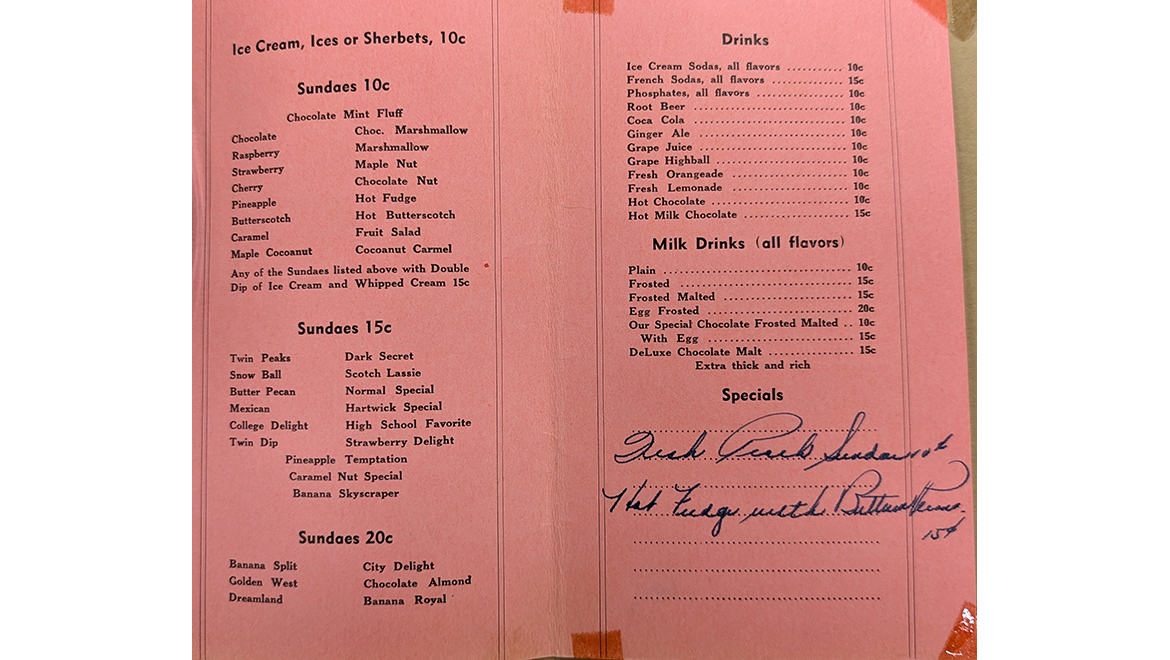 Ice Cream, Ices or Sherbets, 10c
Sundaes 10c
Chocolate Mint Fluff
Chocolate
Raspberry
Strawberry
Cherry
Pineapple
Butterscotch
Caramel
Maple Cocoanut
Choc. Marshmallow
Marshmallow
Maple Nut
Chocolate Nut
Hot Fudge
Hot Butterscotch
Fruit Salad
Cocoanut Carmel
Any of the Sundaes listed above with Double
Dip of Ice Cream and Whipped Cream 15c
Sundaes 15c
Twin Peaks
Snow Ball
Butter Pecan
Mexican
College Delight
Twin Dip
Dark Secret
Scotch Lassie
Normal Special
Hartwick Special
High School Favorite
Strawberry Delight
Pineapple Temptation
Caramel Nut Special
Banana Skyscraper
Sundaes 20c
Banana Split
Golden West
Dreamland
City Delight
Chocolate Almond
Banana Royal
Drinks
Ice Cream Sodas, all flavors .......... 10c
French Sodas, all flavors .............. 15c
Phosphates, all flavors ................ 10c
Root Beer .......................... 10c
Coca Cola .......................... 10c
Ginger Ale ......................... 10c
Grape Juice ........................ 10c
Grape Highball ..................... 10c
Fresh Orangeade .................... 10c
Fresh Lemonade .................... 10c
Hot Chocolate ...................... 10c
Hot Milk Chocolate .................. 15c
Milk Drinks (all flavors)
Plain .............................. 10c
Frosted ............................ 15c
Frosted Malted ..................... 15c
Egg Frosted ........................ 20c
Our Special Chocolate Frosted Malted .. 10c
With Egg ........................ 15c
DeLuxe Chocolate Malt ............... 15c
Extra thick and rich
Specials
Fresh Peach Sundae 10¢
Hot Fudge with Butter Pecans
15¢